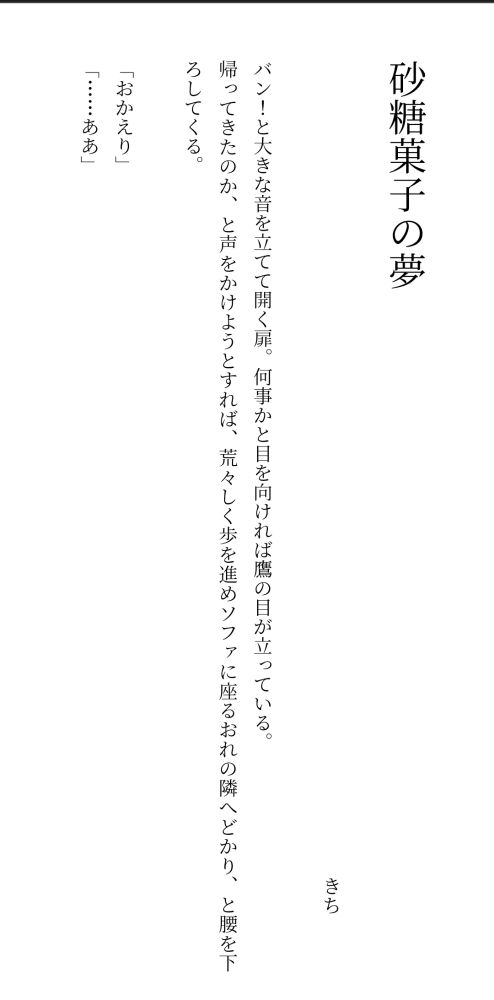 砂糖菓子の夢
きち
バン！と大きな音を立てて開く扉。何事かと目を向ければ鷹の目が立っている。
帰ってきたのか、と声をかけようとすれば、荒々しく歩を進めソファに座るおれの隣へどかり、と腰を下
ろしてくる。
「おかえり」
「……ああ」